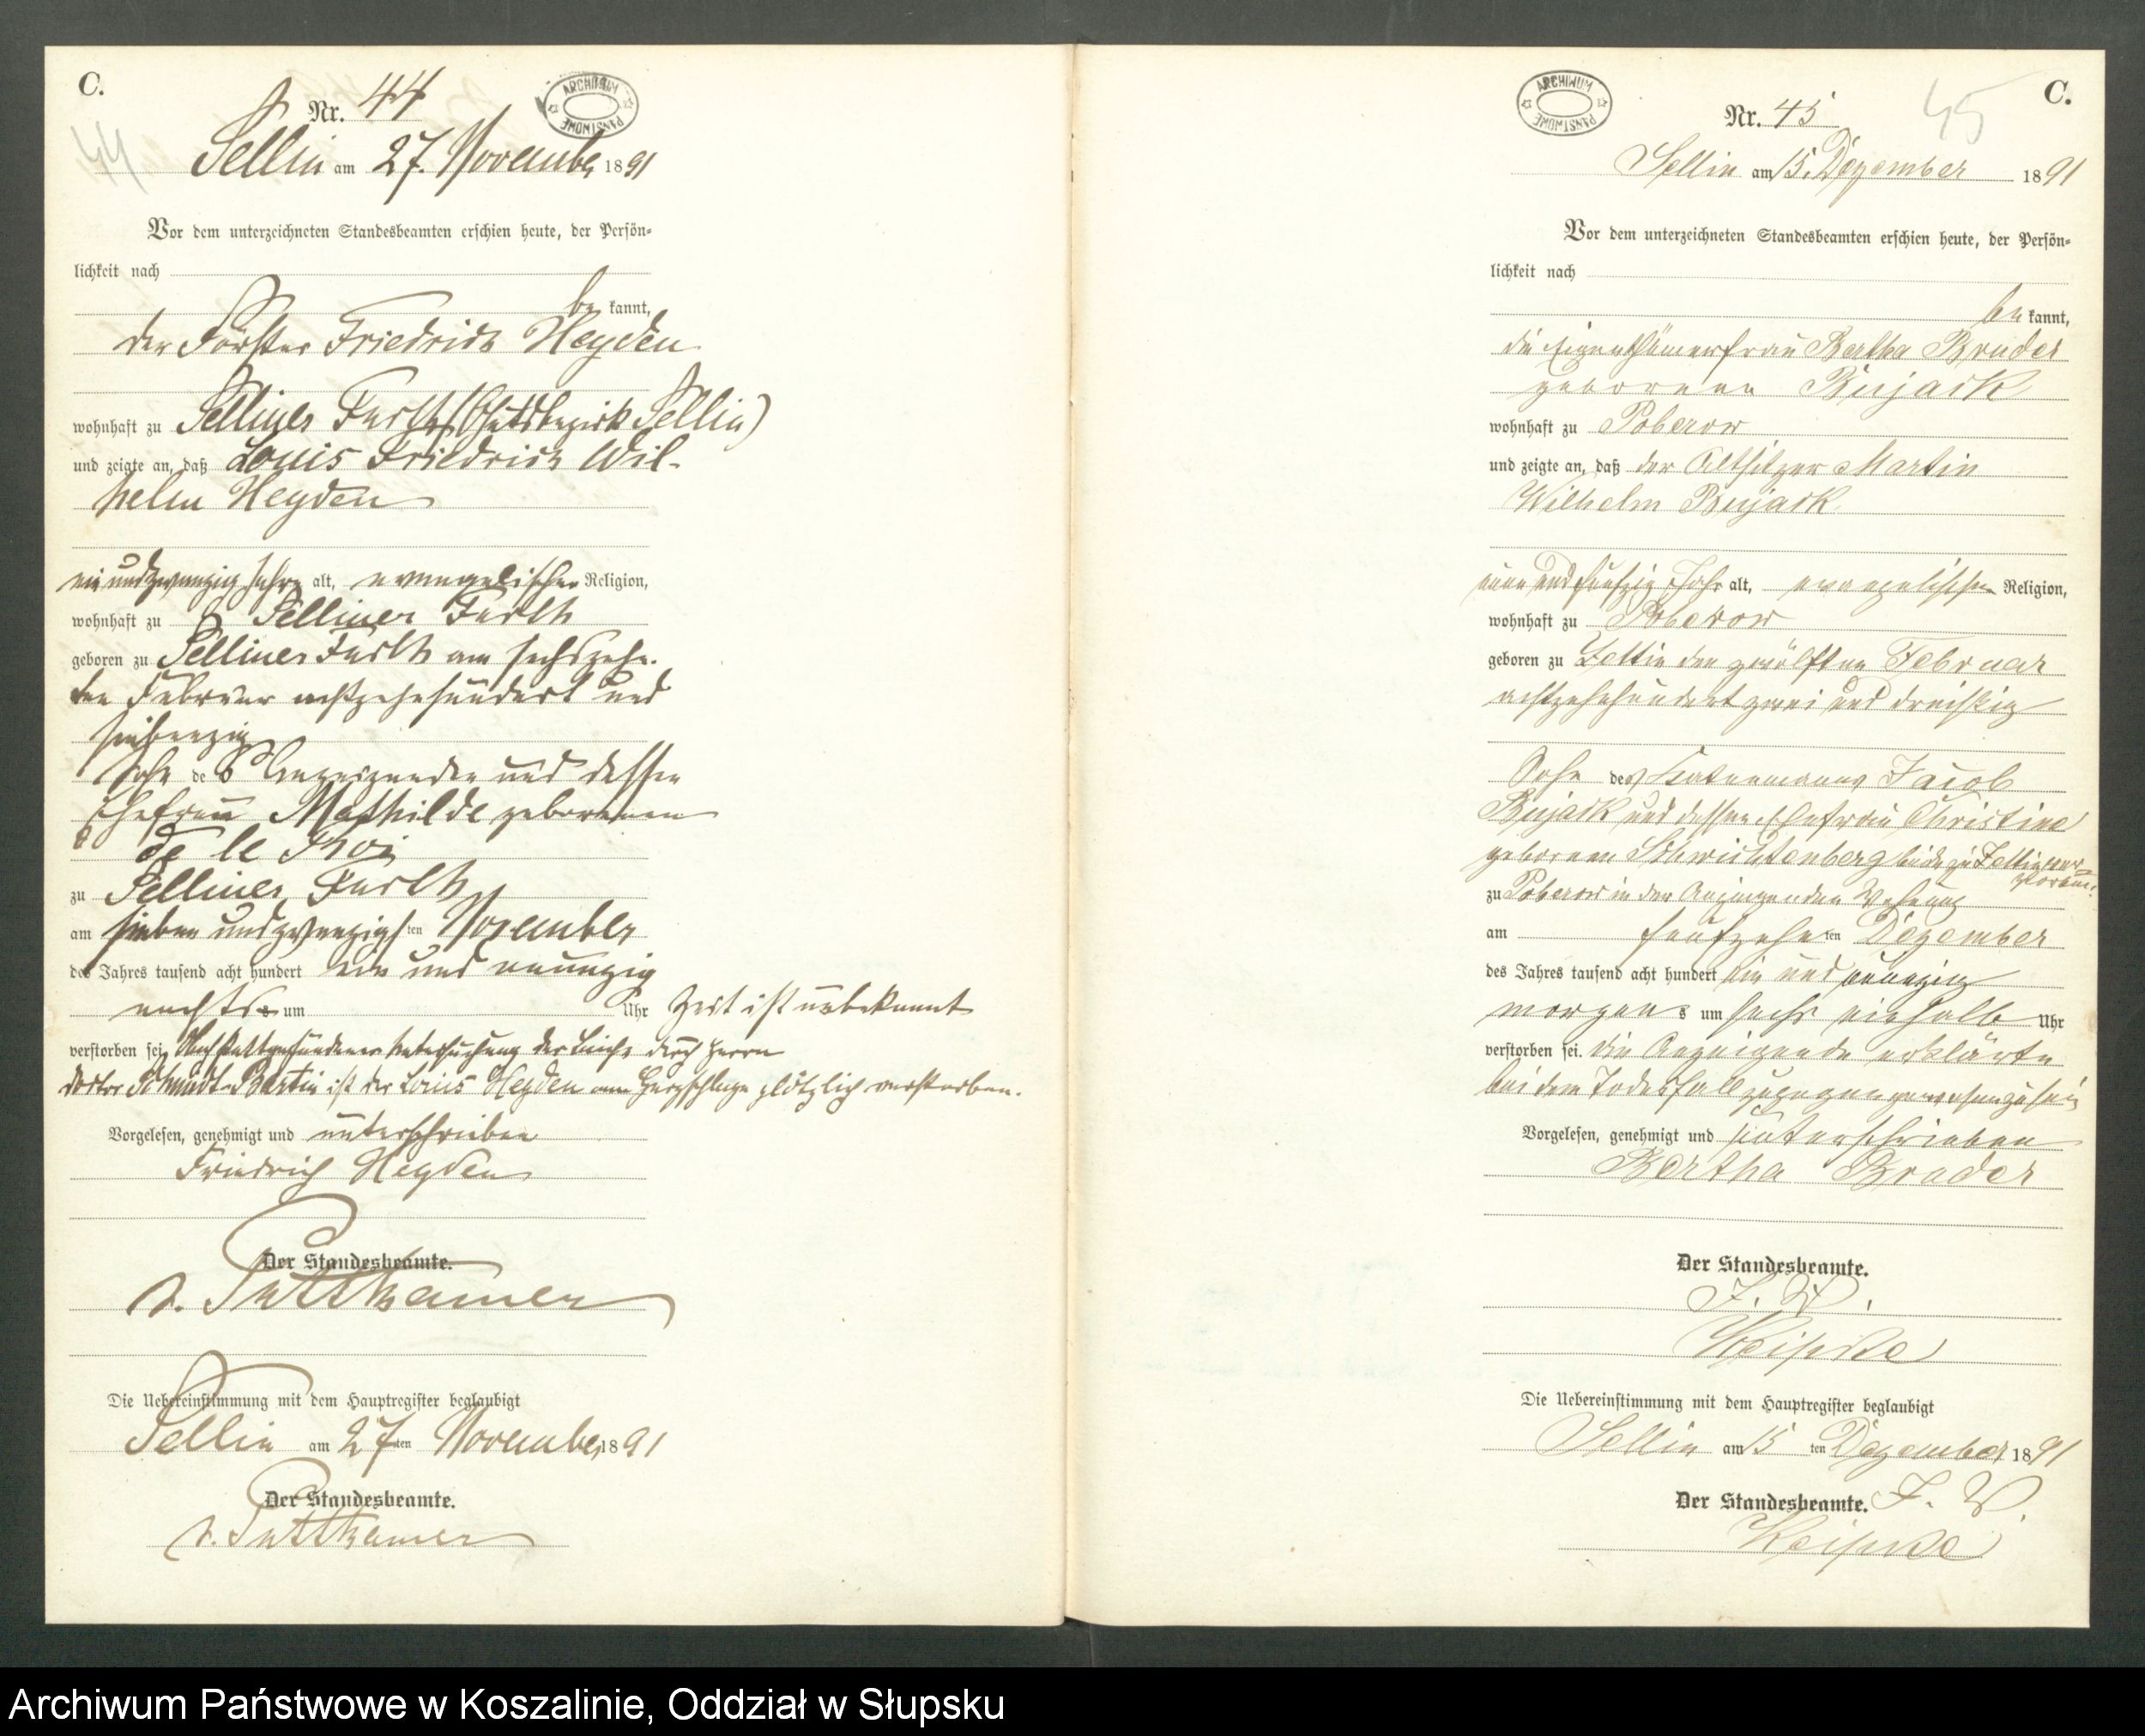 C.
Nr. 44
44
ARCHIWUM PAŃSTWOWE
Sellin am 27. November 1891
Vor dem unterzeichneten Standesbeamten erschien heute, der Persön-
lichkeit nach
be kannt,
der Förster Friedrich Heyden
wohnhaft zu Selliner Furth (Gutsbezirk Sellin)
und zeigte an, daß Louis Friedrich Wil-
helm Heyden
ein und zwanzig Jahre alt, evangelischer Religion,
wohnhaft zu Selliner Furth
geboren zu Selliner Furth am sechszehn-
ten Februar achtzehnhundert und
siebenzig
Sohn des Anzeigenden und dessen
Ehefrau Mathilde geborenen
de le Roi
zu Selliner Furth
am sieben und zwanzigsten November
des Jahres tausend acht hundert ein und neunzig
nachts um Uhr Zeit ist unbekannt
verstorben sei. Nach stattgefundener Untersuchung der Leiche durch Herrn
Doctor Schmidt-Bartin ist der Louis Heyden am Herzschlage plötzlich verstorben.
Vorgelesen, genehmigt und unterschrieben
Friedrich Heyden
Der Standesbeamte.
v. Puttkamer
Die Uebereinstimmung mit dem Hauptregister beglaubigt
Sellin am 27ten November 1891
Der Standesbeamte.
v. Puttkamer
C.
Nr. 45
45
ARCHIWUM PAŃSTWOWE
Sellin am 15. Dezember 1891
Vor dem unterzeichneten Standesbeamten erschien heute, der Persön-
lichkeit nach
be kannt,
die Eigenthümerfrau Bertha Bruder
geborenen Bujack
wohnhaft zu Poberow
und zeigte an, daß der Altsitzer Martin
Wilhelm Bujack
neun und fünfzig Jahr alt, evangelischen Religion,
wohnhaft zu Poberow
geboren zu Zettin den zwölften Februar
achtzehnhundert zwei und dreißig
Sohn des Kathenmanns Jacob
Bujack und dessen Ehefrau Christine
geborenen Schwichtenberg beide zu Zettin ver-
storben.
zu Poberow in der Anzeigenden Wohnung
am fünfzehnten Dezember
des Jahres tausend acht hundert ein und neunzig
morgens um sechs einhalb Uhr
verstorben sei. Die Anzeigende erklärte
bei dem Todesfall zugegen gewesen zu sein
Vorgelesen, genehmigt und unterschrieben
Bertha Bruder
Der Standesbeamte.
J. V.
Die Uebereinstimmung mit dem Hauptregister beglaubigt
Sellin am 15 ten Dezember 1891
Der Standesbeamte. J. V.
Archiwum Państwowe w Koszalinie, Oddział w Słupsku